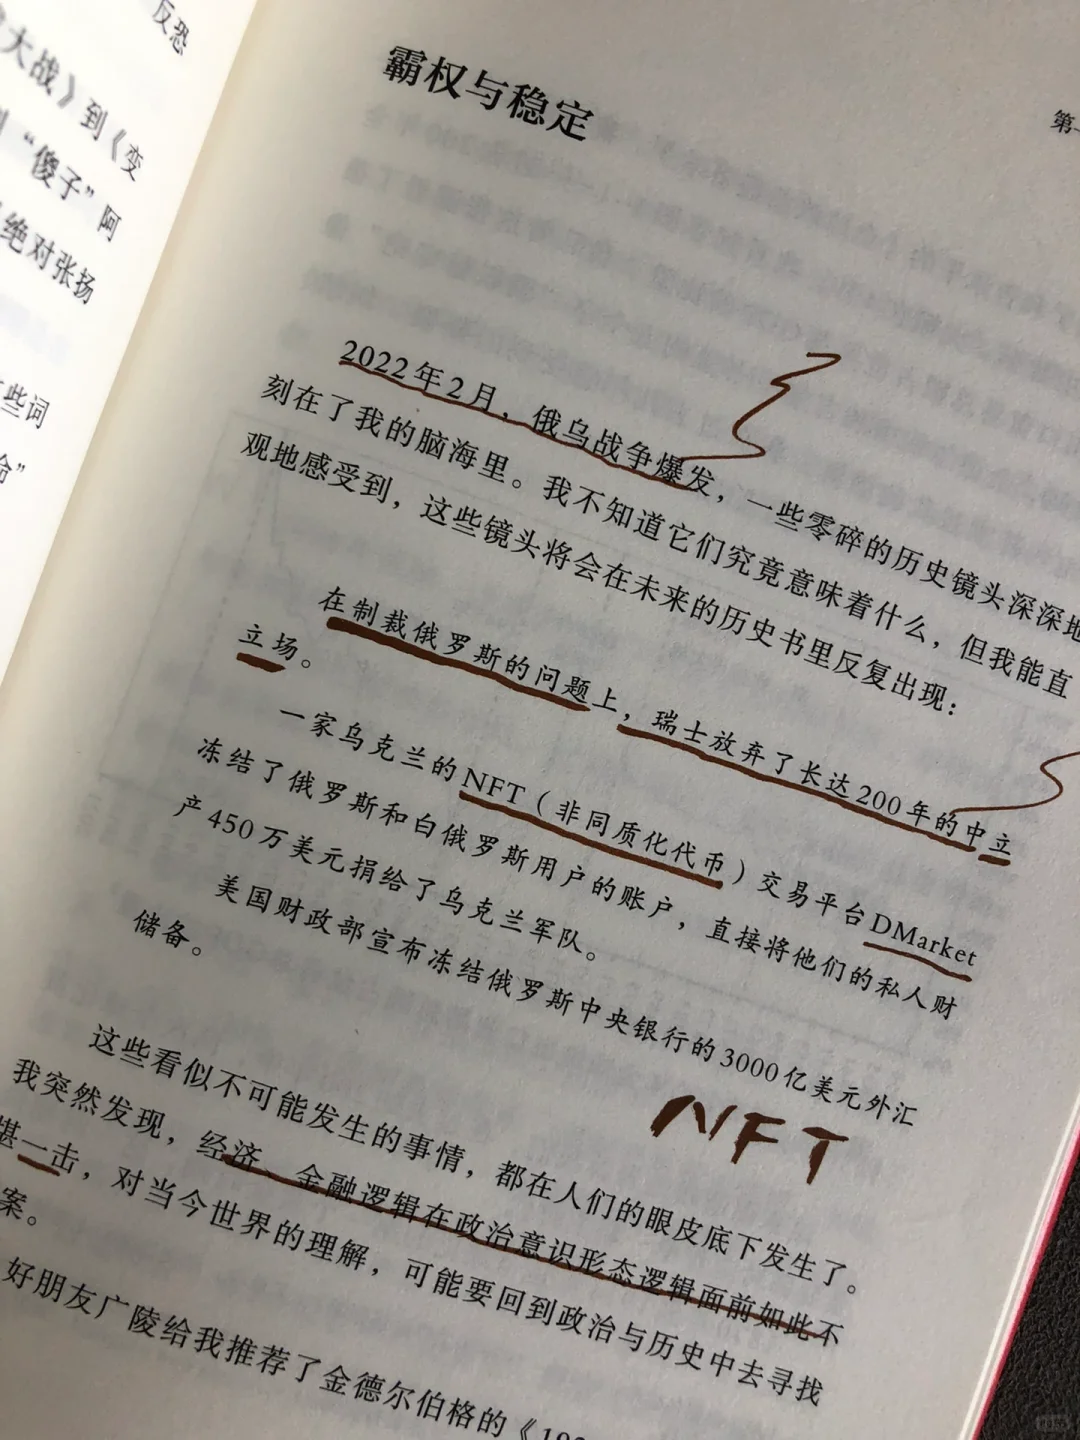 反恐
大战》到《变
“傻子”阿
绝对张扬
些词
命”
霸权与稳定
第一
2022年2月，俄乌战争爆发，一些零碎的历史镜头深深地
刻在了我的脑海里。我不知道它们究竟意味着什么，但我能直
观地感受到，这些镜头将会在未来的历史书里反复出现：
在制裁俄罗斯的问题上，瑞士放弃了长达200年的中立
立场。
一家乌克兰的NFT（非同质化代币）交易平台DMarket
冻结了俄罗斯和白俄罗斯用户的账户，直接将他们的私人财
产450万美元捐给了乌克兰军队。
美国财政部宣布冻结俄罗斯中央银行的3000亿美元外汇
储备。
NFT
这些看似不可能发生的事情，都在人们的眼皮底下发生了。
我突然发现，经济、金融逻辑在政治意识形态逻辑面前如此不
堪一击，对当今世界的理解，可能要回到政治与历史中去寻找
案。
好朋友广陵给我推荐了金德尔伯格的《192